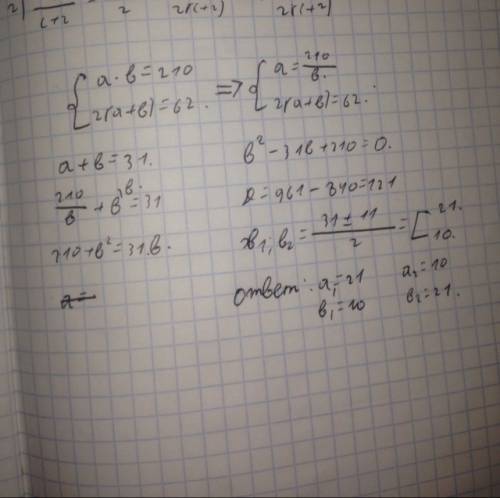 2)
2
{ a·b=210 => { a=210/b.
2(a+b)=62. 2(a+b)=62.
a+b=31.
210/b + b^{1 b.} = 31
210+b²=31.b.
a=
b²-31b+210=0.
D=961-840=121
b₁;b₂= (31±11)/2 = [ 21.
10.
ответ: a₁=21 a₂=10
b₁=10 b₂=21.